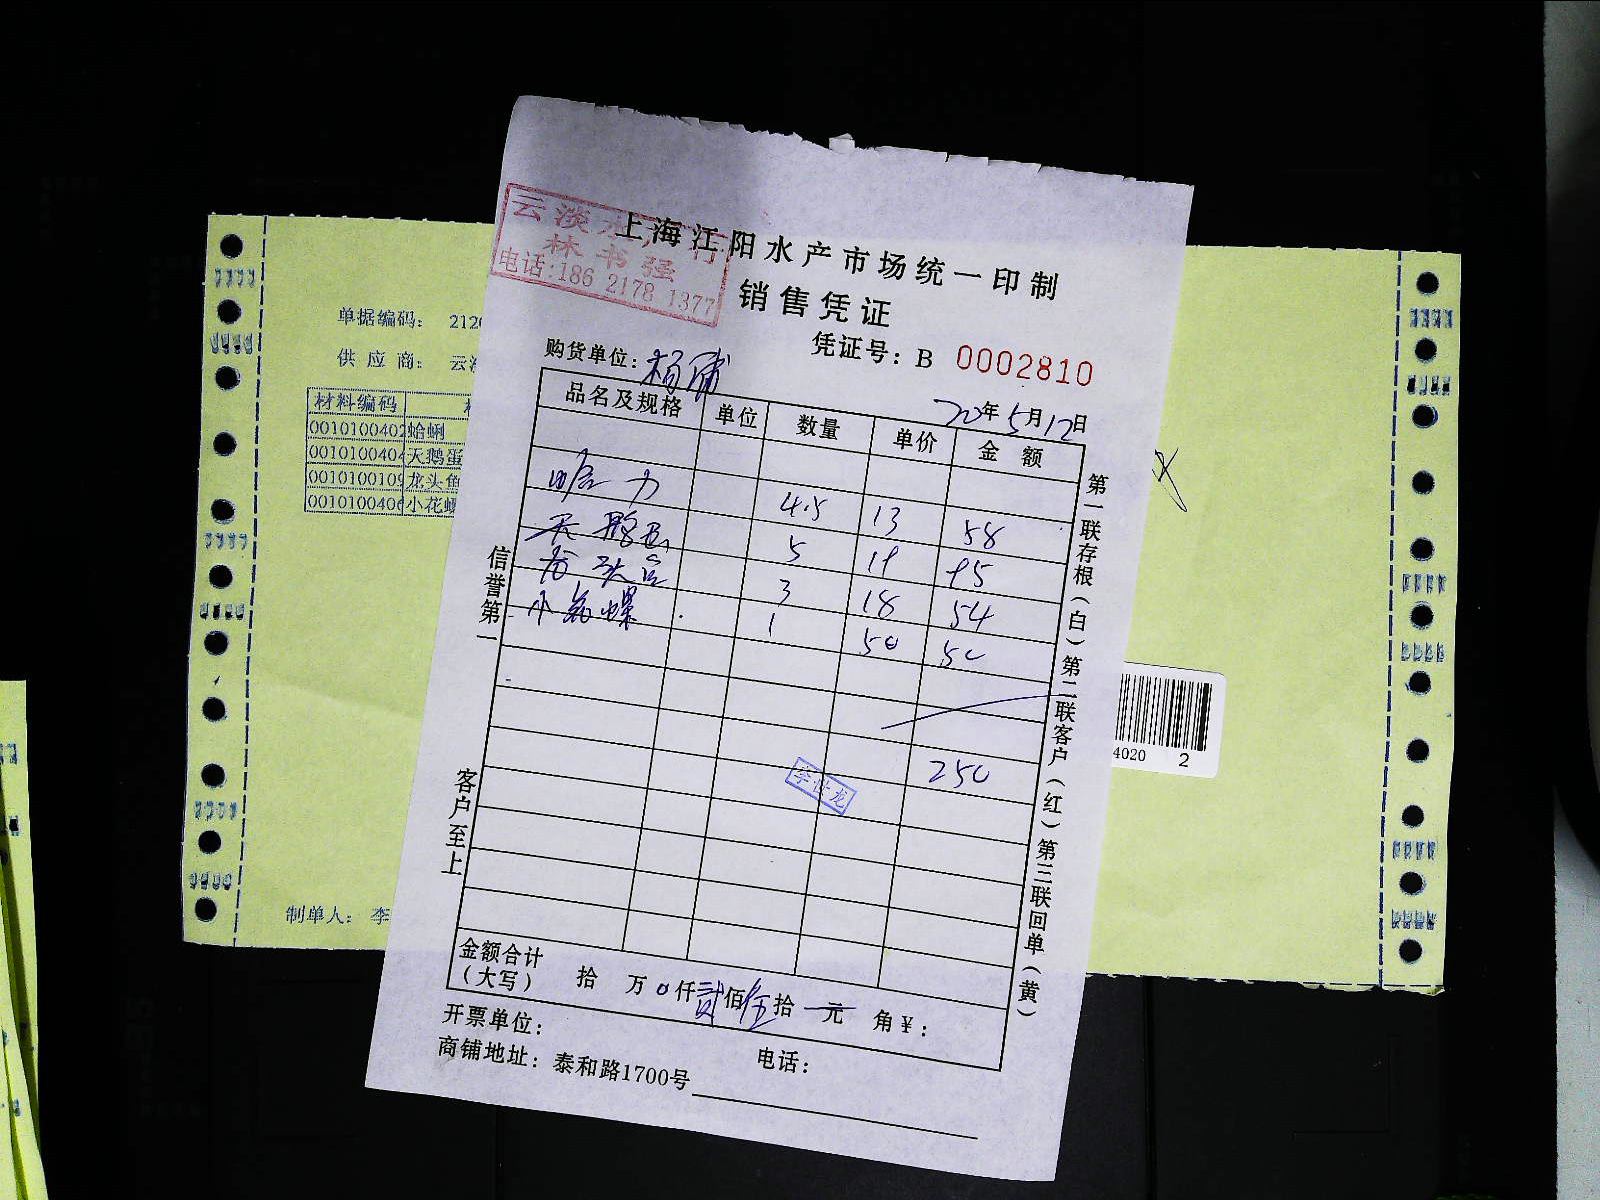 云淡水产行
林书强
电话:186 2178 1377
上海江阳水产市场统一印制
销售凭证
凭证号: B 0002810
购货单位: 杨浦
20年5月12日
品名及规格 单位 数量 单价 金额
哈力 4.5 13 58
天鹅蛋 5 19 95
龙头 3 18 54
小花螺 1 50 50
250
李世龙
金额合计(大写) 拾 万 0仟贰佰伍拾 元 角￥:
开票单位: 电话:
商铺地址: 泰和路1700号
信誉第一
客户至上
第一联存根(白)第二联客户(红)第三联回单(黄)
单据编码: 212
供应商: 云
材料编码
001010040 蛤蜊
001010040 天鹅蛋
001010010 龙头鱼
001010040 小花螺
制单人: 李
4020 2